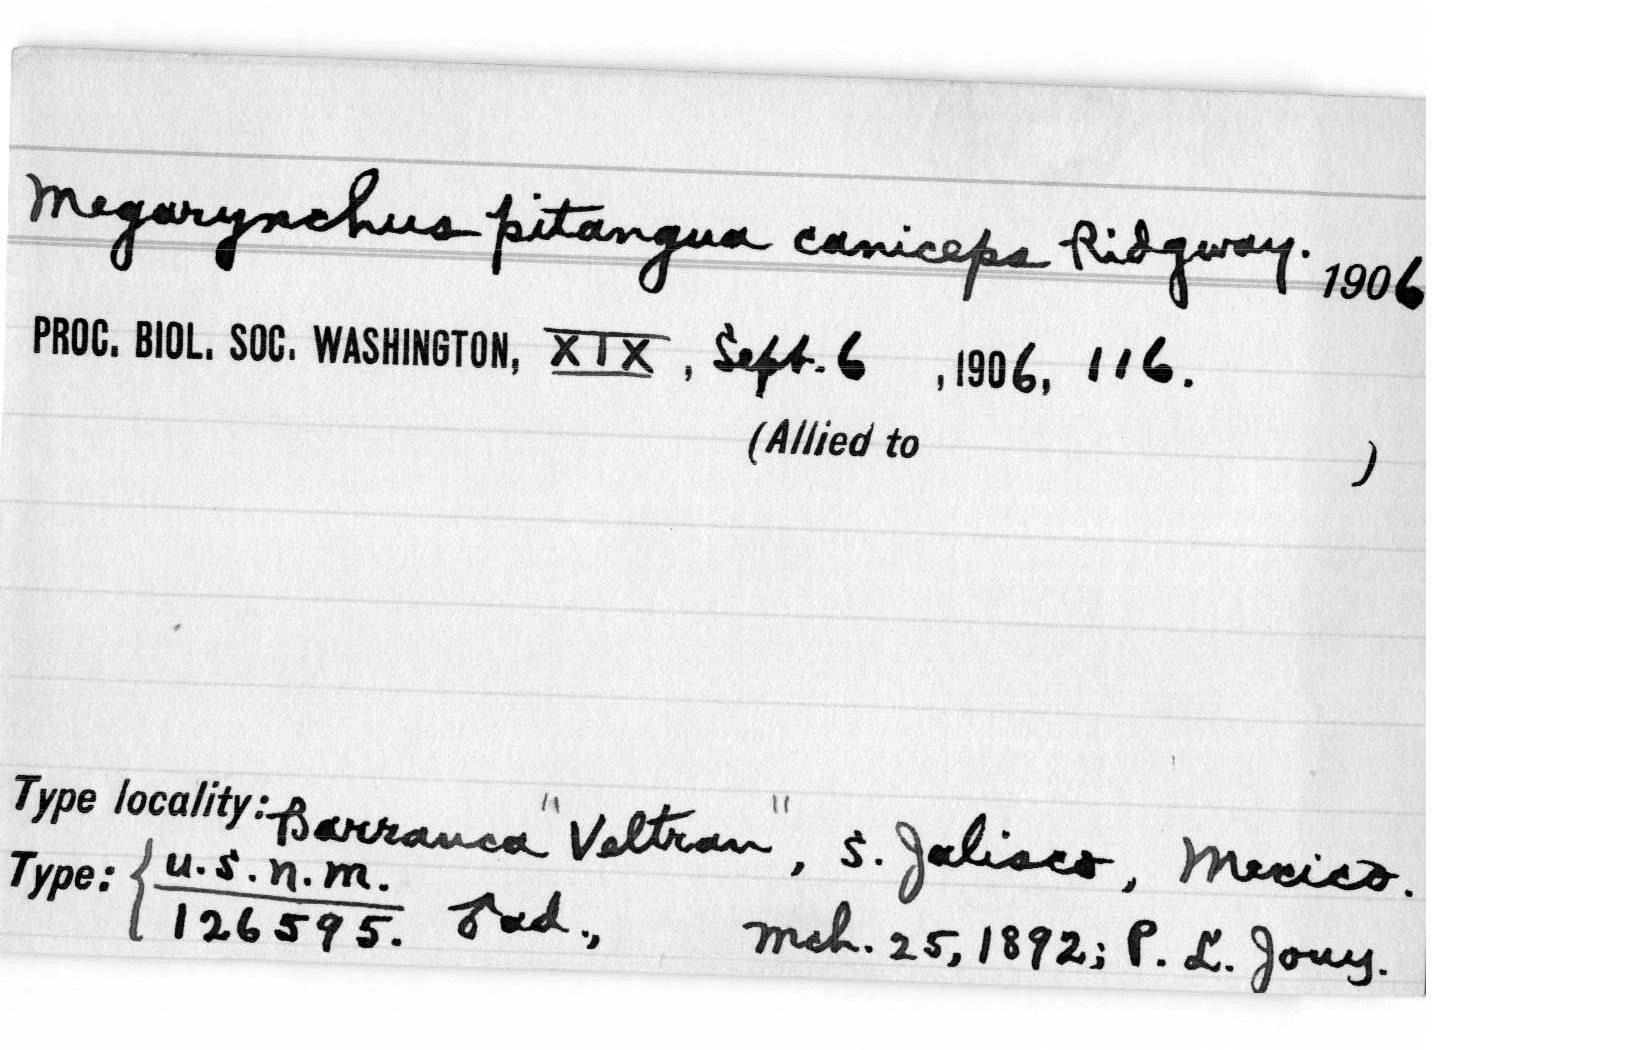 Megarynchus pitangua caniceps Ridgway. 1906
PROC. BIOL. SOC. WASHINGTON, XIX, Sept. 6, 1906, 116.
(Allied to )
Type locality: Barranca "Veltran", S. Jalisco, Mexico.
Type: { U.S.N.M. ♂ ad., Mch. 25, 1892; P. L. Jouy.
126595.